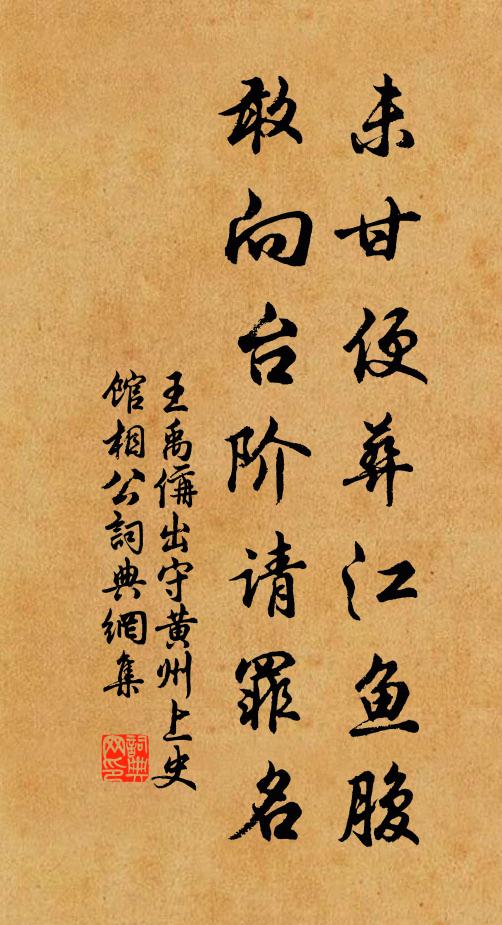 未甘便葬江鱼腹
敢向台阶请罪名
王禹偁出守黄州上史
馆相公詞典網集
詞典
网印